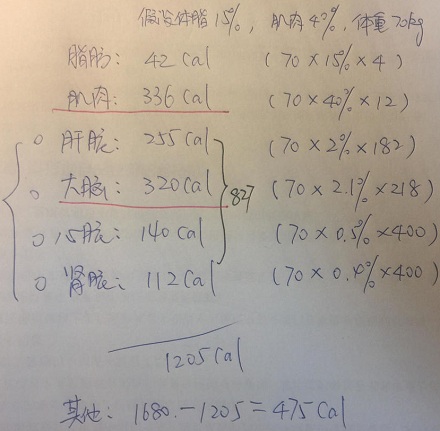 假设体脂15%, 肌肉40%, 体重70kg
脂肪: 42 Cal (70×15%×4)
肌肉: 336 Cal (70×40%×12)
肝脏: 255 Cal (70×2%×182)
大脑: 320 Cal 827 (70×2.1%×218)
心脏: 140 Cal (70×0.5%×400)
肾脏: 112 Cal (70×0.4%×400)
1205 Cal
其他: 1680-1205=475 Cal